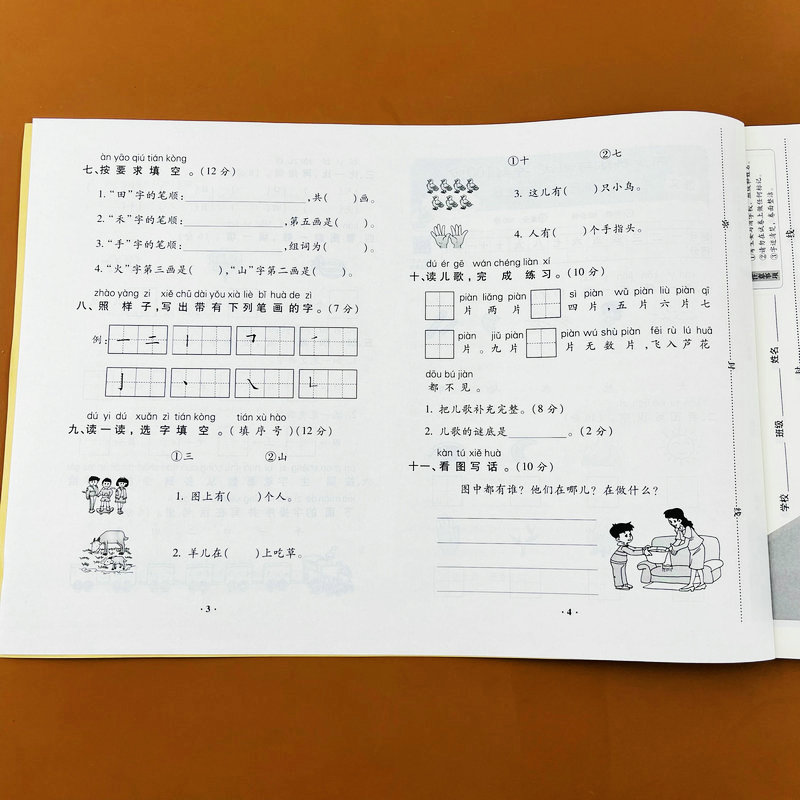 àn yāo qiú tián kòng
七、按要求填空。(12分)
1.“田”字的笔顺:____________,共( )画。
2.“禾”字的笔顺:__________,第五画是( )。
3.“手”字的笔顺:__________,组词为( )。
4.“火”字第三画是( ),“山”字第二画是( )。
zhào yàng zi xiě chū dài yǒu xià liè bǐ huà de zì
八、照样子,写出带有下列笔画的字。(7分)
例: 一 二 丨 ㇇ ㇒
亅 丶 ㇏ ㇗
dú yi dú xuǎn zì tián kòng tián xù hào
九、读一读,选字填空。(填序号)(12分)
①三 ②山
1. 图上有( )个人。
2. 羊儿在( )上吃草。
· 3 ·
①十 ②七
3. 这儿有( )只小鸟。
4. 人有( )个手指头。
dú ér gē wán chéng liàn xí
十、读儿歌,完成练习。(10分)
piàn liǎng piàn sì piàn wǔ piàn liù piàn qī
片 两 片 四 片,五 片 六 片 七
piàn jiǔ piàn piàn wú shù piàn fēi rù lú huā
片。九 片 片 无 数 片,飞 入 芦 花
dōu bú jiàn
都 不 见。
1. 把儿歌补充完整。(8分)
2. 儿歌的谜底是________。(2分)
kàn tú xiě huà
十一、看图写话。(10分)
图中都有谁?他们在哪儿?在做什么?
· 4 ·
②请勿在试卷上做任何标记。
③字迹清楚,卷面整洁。
学校________ 班级________ 姓名________
线
封